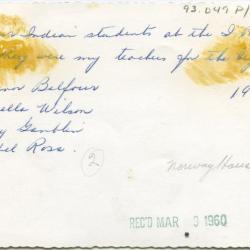 93.049 P/
Indian students at the I
they were my teachers for the
19
Belfour
ella Wilson
y Gamblin
el Ross.
2
Norway House
REC'D MAR 3 1960